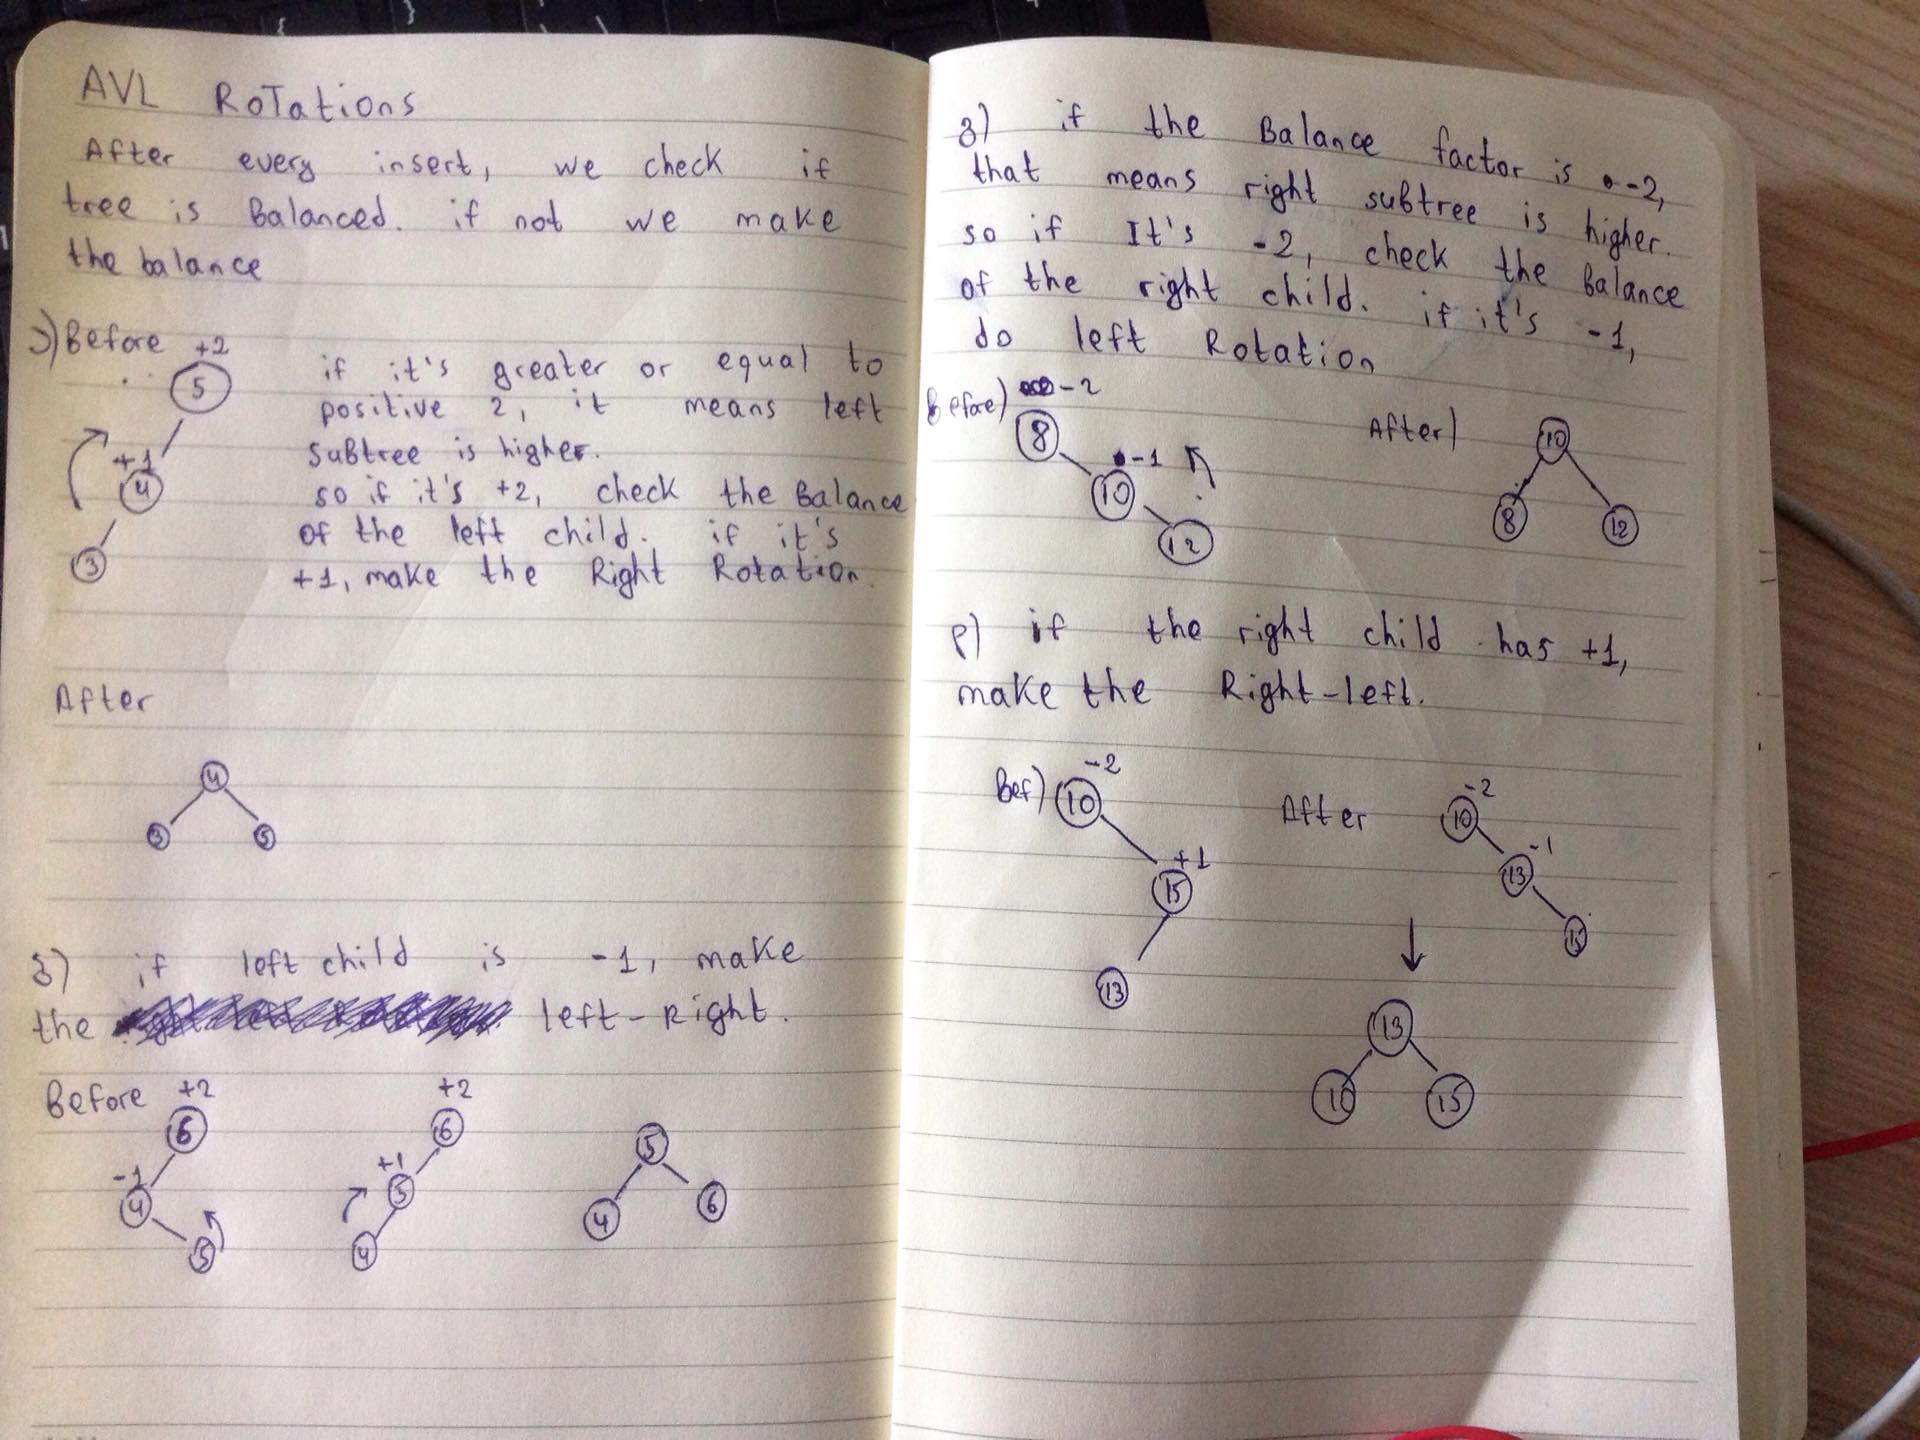 AVL RoTations
After every insert, we check if
tree is Balanced. if not we make
the balance
Before
+2
5
+1
4
3
if it's greater or equal to
positive 2, it means left
subtree is higher.
so if it's +2, check the Balance
of the left child. if it's
+1, make the Right Rotation.
After
4
3 5
if left child is -1, make
the left-Right.
Before +2
6
-1
4
5
+2
6
+1
5
4
5
4 6
if the Balance factor is -2,
that means right subtree is higher.
so if It's -2, check the Balance
of the right child. if it's -1,
do left Rotation
Before) -2
8
-1
10
12
After)
10
8 12
if the right child has +1,
make the Right-left.
Bef)
-2
10
+1
15
13
After
-2
10
-1
13
15
13
10 15